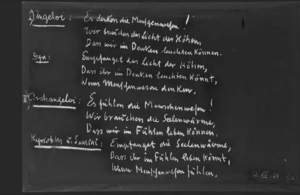 Angeloi: Es denken die Menschenwesen!
Wir brauchen das Licht der Höhen,
Dass wir im Denken leuchten können.
Empfanget das Licht der Höhen,
Dass ihr im Denken leuchten könnt,
Wenn Menschenwesen denken.
Archangeloi: Es fühlen die Menschenwesen!
Wir brauchen die Seelenwärme,
Dass wir im Fühlen leben können.
Kyriotetes Empfanget die Seelenwärme,
Dass ihr im Fühlen leben könnt,
Wenn Menschenwesen fühlen.